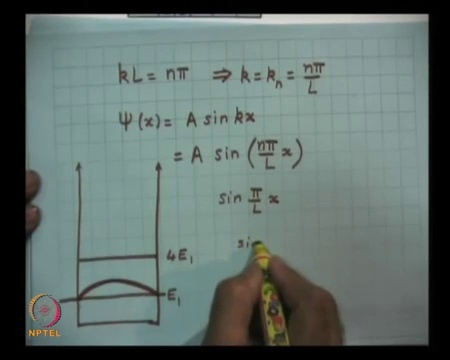 kL = nπ ⇒ k = kₙ = nπ/L
Ψ(x) = A sin kx
= A sin (nπ/L x)
sin π/L x
si
4E₁
E₁
NPTEL